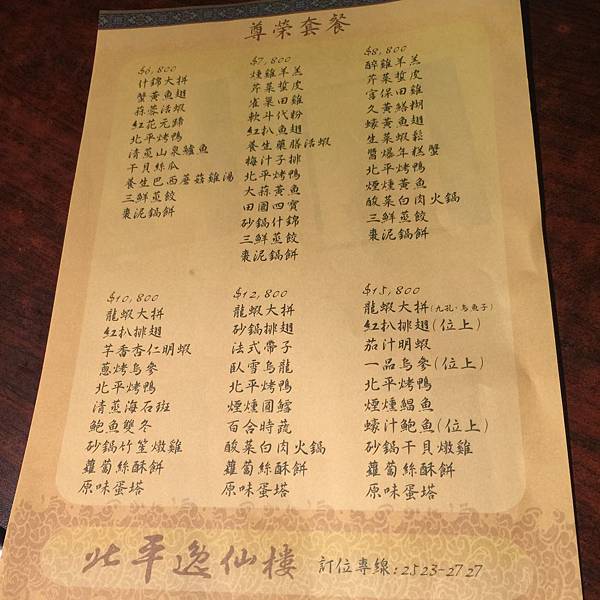 尊榮套餐
$6,800
什錦大拼
蟹黃魚翅
蒜蓉活蝦
紅花元蹄
北平烤鴨
清蒸山泉鱸魚
干貝絲瓜
養生巴西蘑菇雞湯
三鮮蒸餃
棗泥鍋餅
$7,800
燻雞羊羔
芹菜蜇皮
雀巢田雞
軟斗代粉
紅扒魚翅
養生藥膳活蝦
梅汁子排
北平烤鴨
大蒜黃魚
田園四寶
砂鍋什錦
三鮮蒸餃
棗泥鍋餅
$8,800
醉雞羊羔
芹菜蜇皮
宮保田雞
久黃鱔糊
蠔黃魚翅
生菜蝦鬆
醬爆年糕蟹
北平烤鴨
煙燻黃魚
酸菜白肉火鍋
三鮮蒸餃
棗泥鍋餅
$10,800
龍蝦大拼
紅扒排翅
芊香杏仁明蝦
蔥烤烏參
北平烤鴨
清蒸海石斑
鮑魚雙冬
砂鍋竹笙燉雞
蘿蔔絲酥餅
原味蛋塔
$12,800
龍蝦大拼
砂鍋排翅
法式帶子
臥雪烏龍
北平烤鴨
煙燻圓鱈
百合時蔬
酸菜白肉火鍋
蘿蔔絲酥餅
原味蛋塔
$15,800
龍蝦大拼(九孔·烏魚子)
紅扒排翅(位上)
茄汁明蝦
一品烏參(位上)
北平烤鴨
煙燻鯧魚
蠔汁鮑魚(位上)
砂鍋干貝燉雞
蘿蔔絲酥餅
原味蛋塔
北平逸仙樓 訂位專線:2523-2727